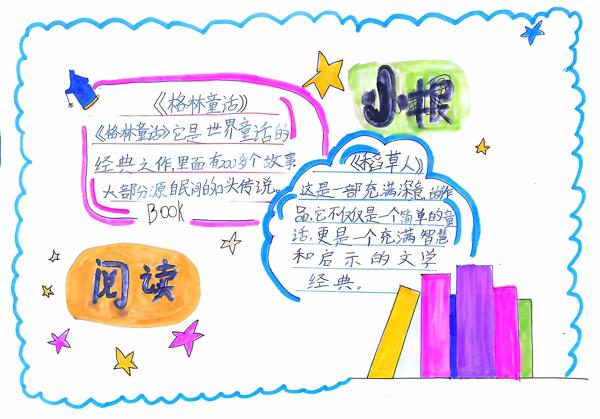 《格林童话》
《格林童话》它是世界童话的
经典之作,里面有200多个故事
大部分源自民间的口头传说。
Book
小报
《稻草人》
这是一部充满深色的作
品,它不仅仅是一个简单的童
话,更是一个充满智慧
和启示的文学
经典。
阅读